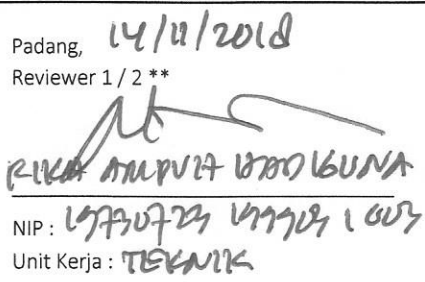 Padang, 14/11/2018
Reviewer 1 / 2 **
RIKA AMPUH HADIGUNA
NIP : 19730723 199903 1 003
Unit Kerja : TEKNIK